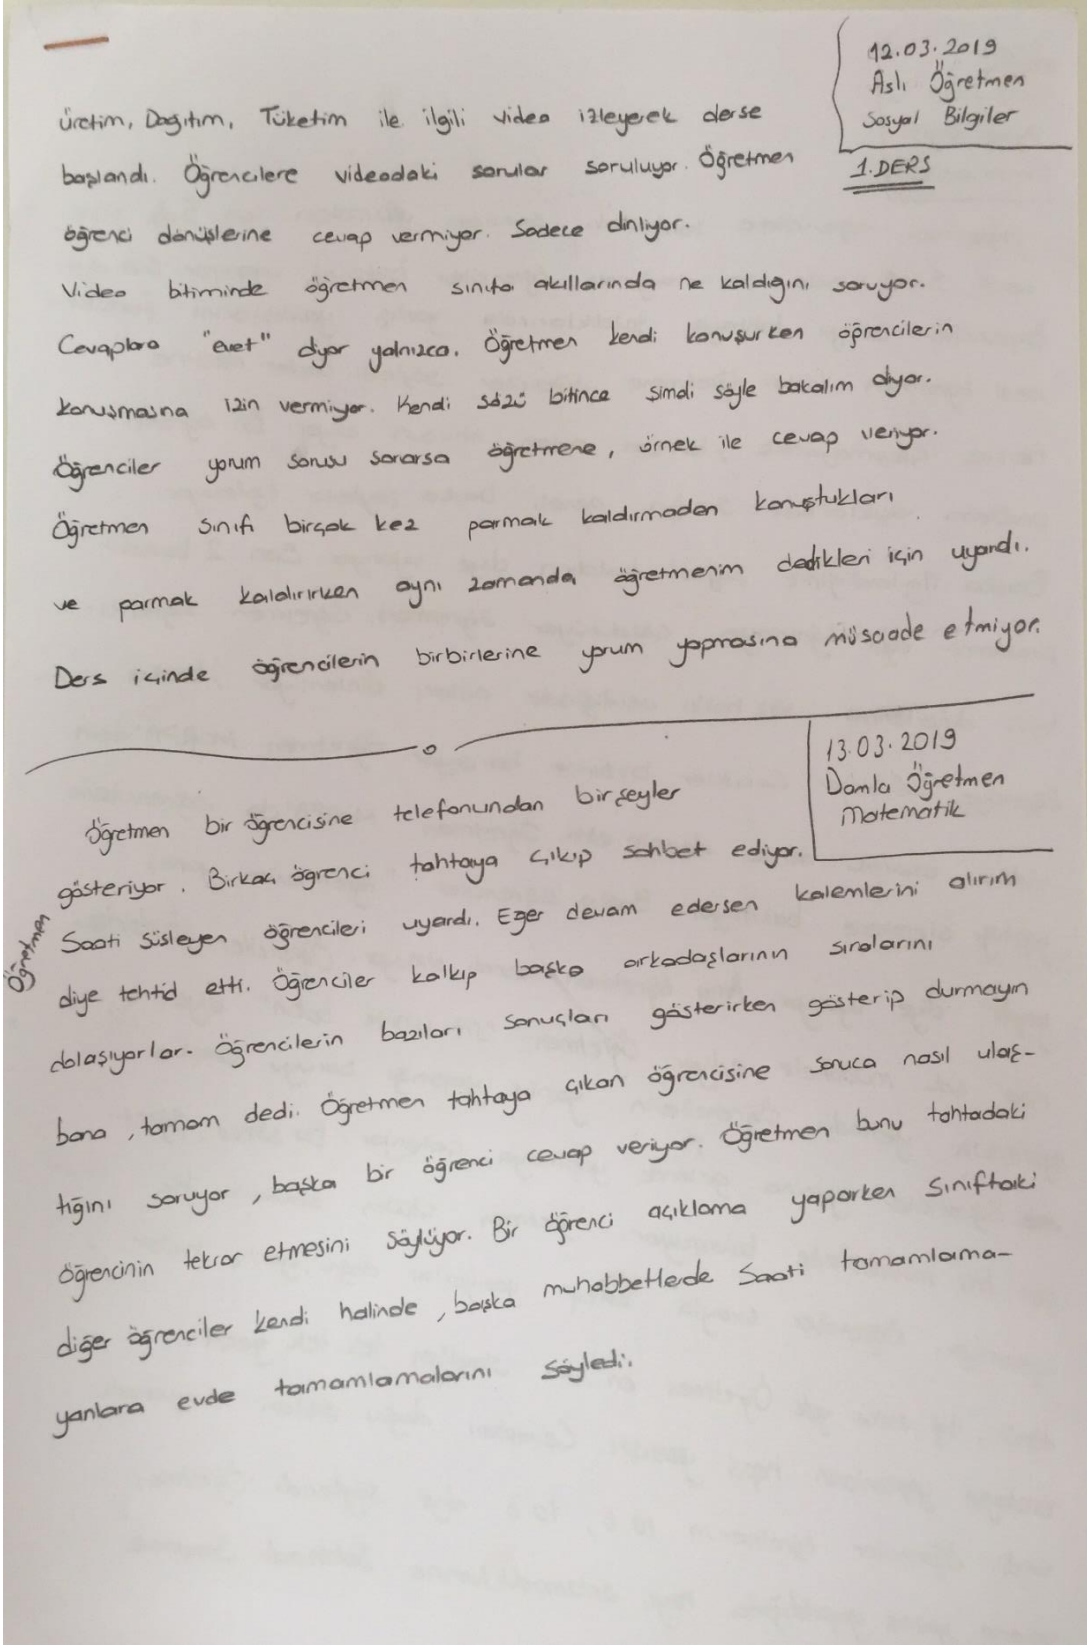 12.03.2019
Aslı Öğretmen
Sosyal Bilgiler
1.DERS
Üretim, Dağıtım, Tüketim ile ilgili video izleyerek derse
başlandı. Öğrencilere videodaki sorular soruluyor. Öğretmen
öğrenci dönüşlerine cevap vermiyor. Sadece dinliyor.
Video bitiminde öğretmen sınıfa akıllarında ne kaldığını soruyor.
Cevaplara "evet" diyor yalnızca. Öğretmen kendi konuşurken öğrencilerin
konuşmasına izin vermiyor. Kendi sözü bitince şimdi söyle bakalım diyor.
Öğrenciler yorum sorusu sorarsa öğretmene, örnek ile cevap veriyor.
Öğretmen sınıfı birçok kez parmak kaldırmadan konuştukları
ve parmak kaldırırken aynı zamanda öğretmenim dedikleri için uyardı.
Ders içinde öğrencilerin birbirlerine yorum yapmasına müsaade etmiyor.
13.03.2019
Damla Öğretmen
Matematik
Öğretmen bir öğrencisine telefonundan birşeyler
gösteriyor. Birkaç öğrenci tahtaya çıkıp sohbet ediyor.
Öğretmen
Saati süsleyen öğrencileri uyardı. Eğer devam edersen kalemlerini alırım
diye tehtid etti. Öğrenciler kalkıp başka arkadaşlarının sıralarını
dolaşıyorlar. Öğrencilerin bazıları sonuçları gösterirken gösterip durmayın
bana, tamam dedi. Öğretmen tahtaya çıkan öğrencisine sonuca nasıl ulaş-
tığını soruyor, başka bir öğrenci cevap veriyor. Öğretmen bunu tahtadaki
öğrencinin tekrar etmesini söylüyor. Bir öğrenci açıklama yaparken sınıftaki
diğer öğrenciler kendi halinde, başka muhabbetlerde Saati tamamlama-
yanlara evde tamamlamalarını söyledi.